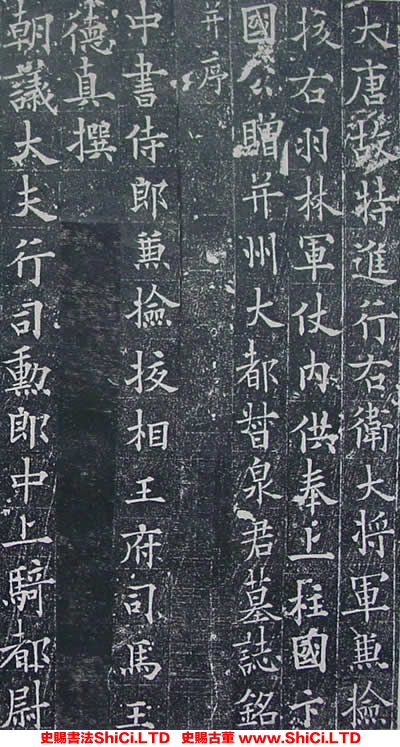 大唐故特進行右衛大將軍蒹撿
挍右羽林軍仗内供奉上柱國卞
國公贈并州大都督泉君墓誌銘
并序
中書侍郎蒹撿挍相王府司馬王
德真撰
朝議大夫行司勳郎中上騎都尉
史賜書法ShiCi.LTD 史賜古董 www.ShiCi.LTD